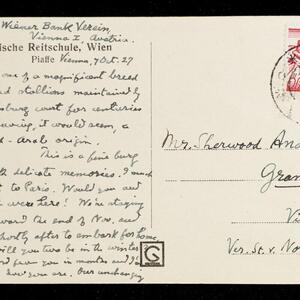 Wiener Bank Verein,
Vienna I, Austria.
ische Reitschule, Wien
Piaffe Vienna, 7 Oct. 27
one of a magnificent breed
ed stallions maintained by
sburg court for centuries
having, it would seem, a
- Arab origin.
This is a fine burg
th delicate memories, I much
t to Paris. Would you and
were here! We're staying
ward the end of Nov. and
shortly after to embark for home.
will you two be in the winter
you in months and I'd
how you are. Our unchanging
Mr. Sherwood And
Gran
Vi
Ver. St. v. No
G